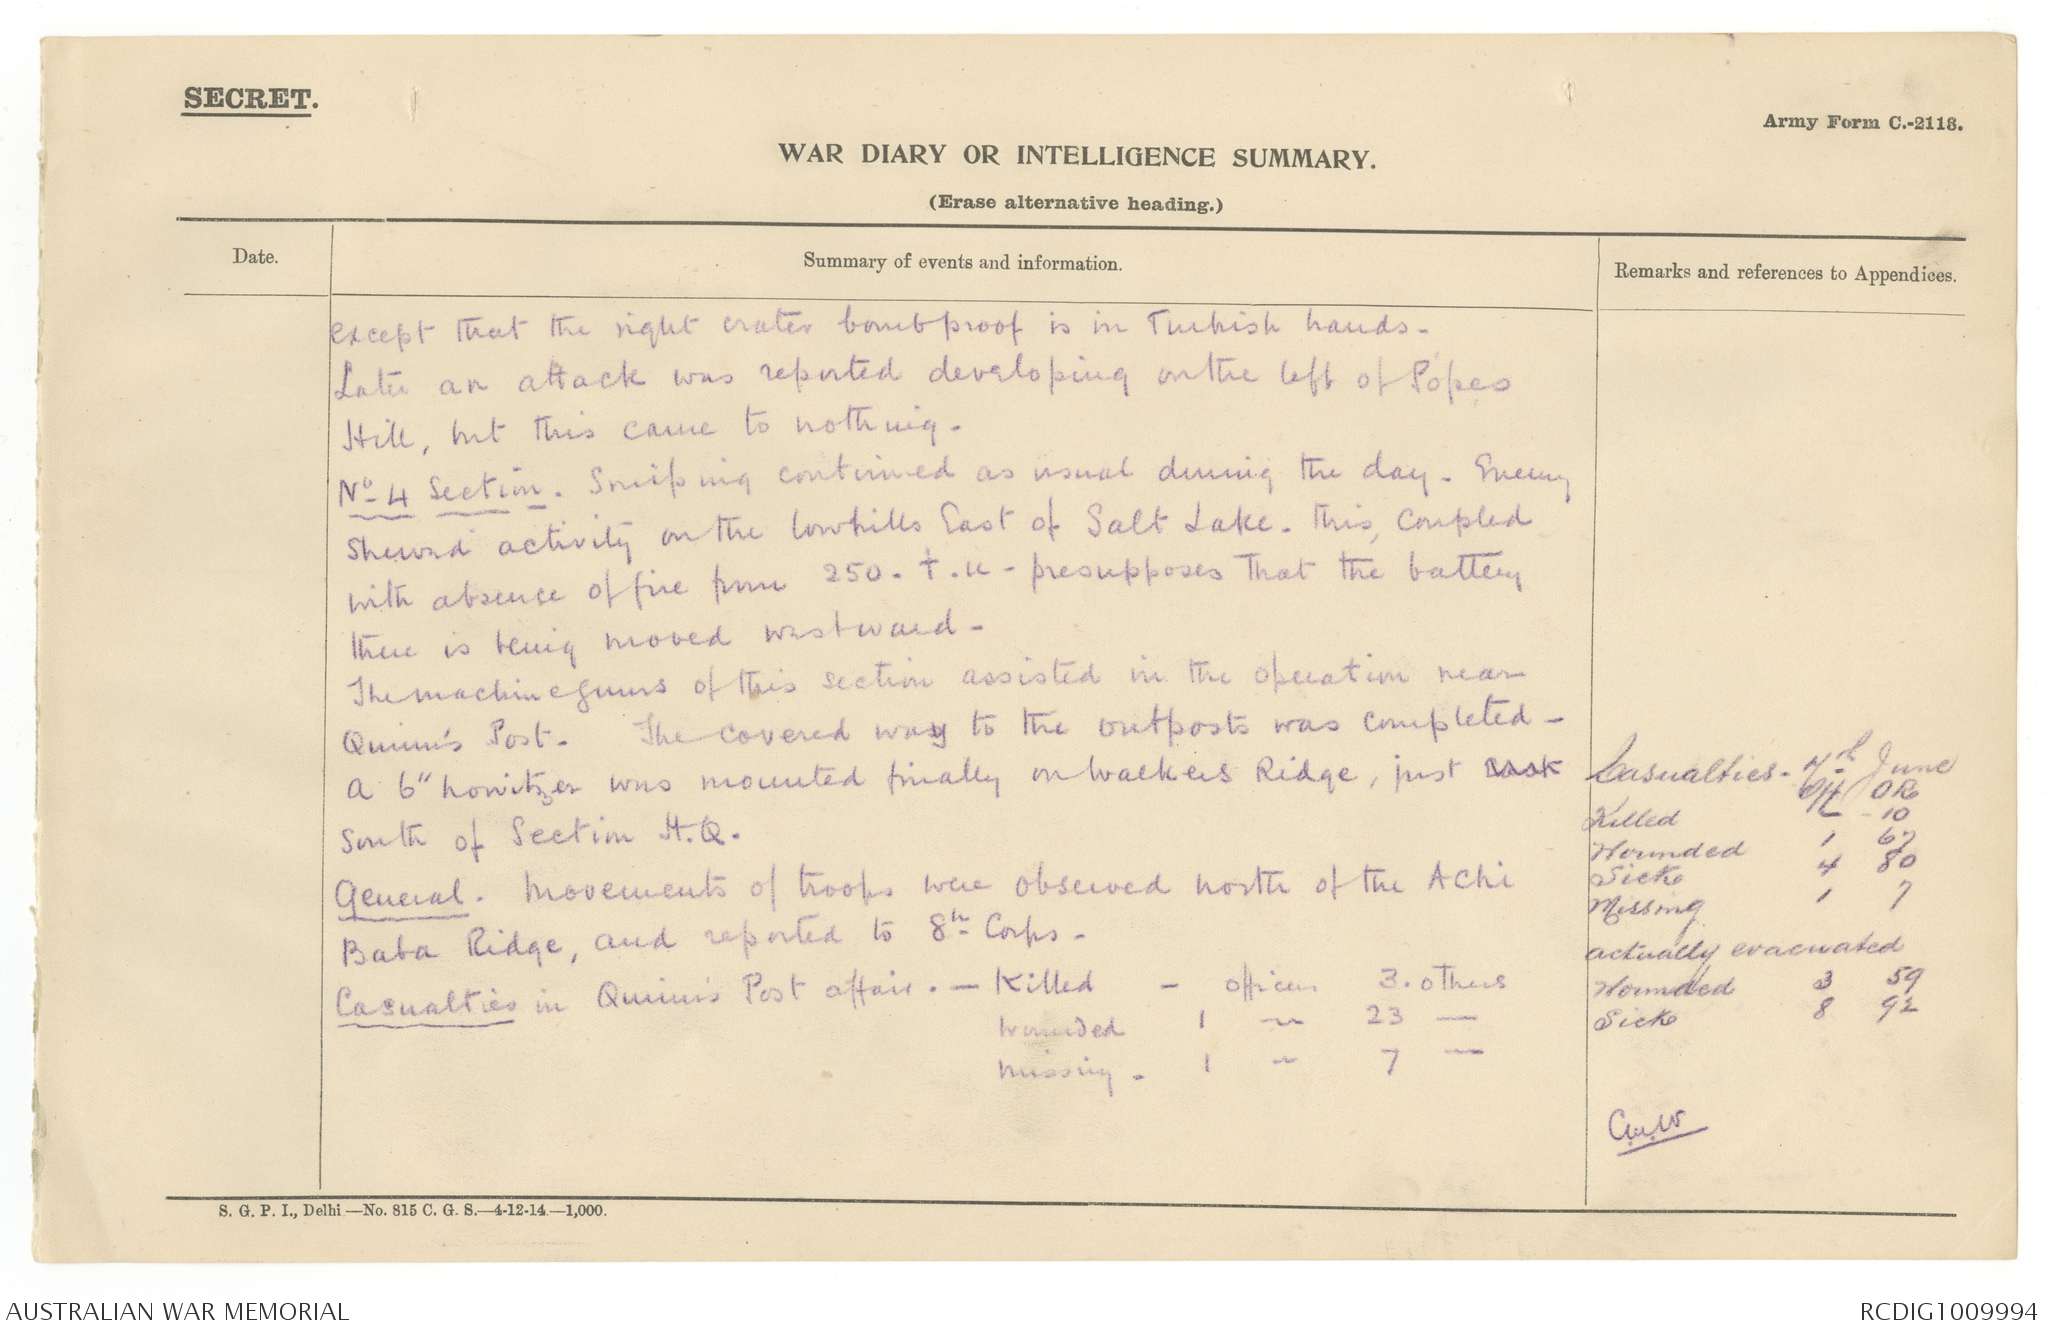 SECRET.
Army Form C.-2118.
WAR DIARY OR INTELLIGENCE SUMMARY.
(Erase alternative heading.)
Date.
Summary of events and information.
Remarks and references to Appendices.
except that the right crater bombproof is in Turkish hands.
Later an attack was reported developing on the left of Popes
Hill, but this came to nothing.
No 4 Section. Sniping continued as usual during the day. Enemy
shewed activity on the low hills East of Salt Lake. This, coupled
with absence of fire from 250. T. U - presupposes that the battery
there is being moved westward -
The machine guns of this section assisted in the operation near
Quinn's Post. The covered way to the outposts was completed -
A 6" howitzer was mounted finally on Walkers Ridge, just
South of Section H.Q.
General. Movements of troops were observed north of the Achi
Baba Ridge, and reported to 8th Corps -
Casualties in Quinn's Post affair. — Killed - officer 3. others
Wounded 1 " 23 —
Missing - 1 " 7 —
Casualties - 7th June
Off OR
Killed - 10
Wounded 1 67
Sick 4 80
Missing 1 7
actually evacuated
Wounded 3 59
Sick 8 92
S. G. P. I., Delhi—No. 815 C. G. S.—4-12-14—1,000.
AUSTRALIAN WAR MEMORIAL
RCDIG1009994